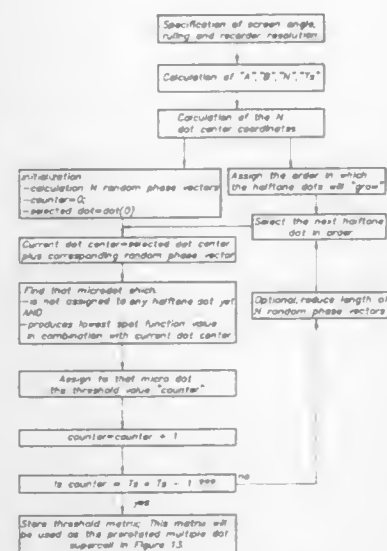 Specification of screen angle,
ruling and recorder resolution
Calculation of "A","B","N","Ts"
Calculation of the N
dot center coordinates
Initialization
-calculation N random phase vectors
-counter=0;
-selected dot=dot(0)
Assign the order in which
the halftone dots will "grow"
Select the next halftone
dot in order
Current dot center=selected dot center
plus corresponding random phase vector
Find that microdot which
-is not assigned to any halftone dot yet
AND
-produces lowest spot function value
in combination with current dot center
Optional, reduce length of
N random phase vectors
Assign to that micro dot
the threshold value "counter"
counter=counter + 1
Is counter = Ts * Ts - 1
no
yes
Store threshold matrix; This matrix will
be used as the prerotated multiple dot
supercell in Figure 13.